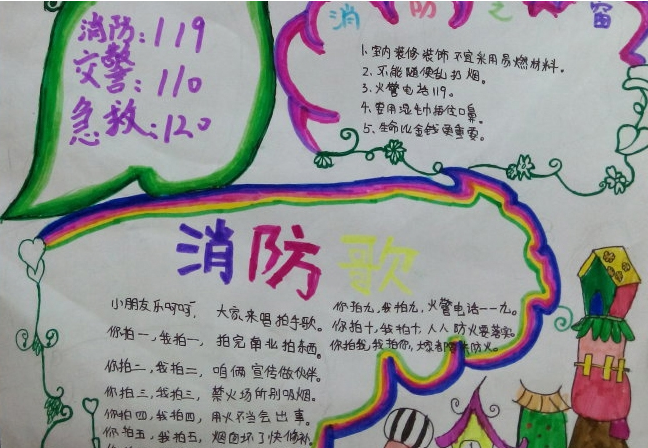 消防：119
交警：110
急救：120
消防之窗
1.室内装修装饰不宜采用易燃材料。
2.不能随便乱扔烟。
3.火警电话119。
4.要用湿毛巾捂住口鼻。
5.生命比金钱更重要。
消防歌
小朋友乐呵呵，大家来唱拍手歌。
你拍一，我拍一，拍完南北拍东西。
你拍二，我拍二，咱俩宣传做伙伴。
你拍三，我拍三，禁火场所别吸烟。
你拍四，我拍四，用火不当会出事。
你拍五，我拍五，烟囱坏了快修补。
你拍九，我拍九，火警电话一一九。
你拍十，我拍十，人人防火要落实。
你拍我，我拍你，大家都来防火。